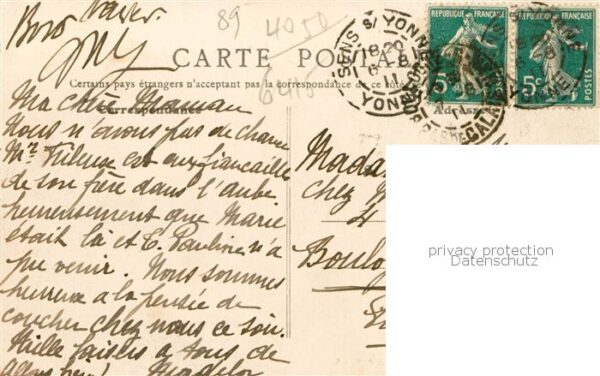 89 4050
CARTE POSTALE
Certains pays étrangers n'acceptent pas la correspondance de ce côté
6415
Correspondance
Ma chère Maman
Nous n'avons pas de chance
Mr est aux fiancailles
de son frère dans l'aube
heureusement que Marie
était là et E. Pauline n'a
pu venir. Nous sommes
heureux a la pensée de
coucher chez nous ce soir.
Mille baisers a tous de
SENS S/ YONNE
18 20
11
YONNE
RÉPUBLIQUE FRANÇAISE
5c
POSTES
RÉPUBLIQUE FRANÇAISE
5c
POSTES
Adresse
Madame
chez M
4
Boulog
privacy protection
Datenschutz